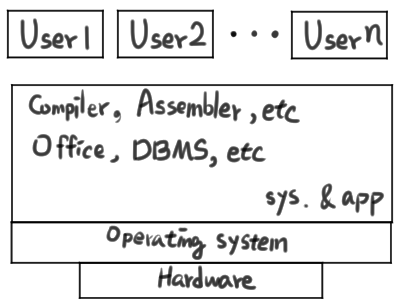 User1 User2 ... User n
Compiler, Assembler, etc
Office, DBMS, etc
sys. & app
Operating system
Hardware